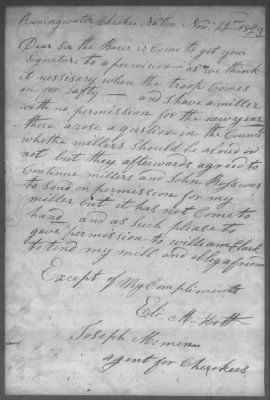 Runingwater Cherokee Nation Nov.
Dear Sir the Barer is Come to git your
Signature to a permision as we think
it nessisary when the troop Comes
on our safty and I have a miller
with no permission for the new year
there arose a question in the Council
whether millers should be aloud or
not but they afterwards agreed to
Continue millers and John Ross was
to send on permission for my
miller but it has not Come to
hand and as such please to
gave permission to william Clark
to tend my mill and oblige a friend
Except of My Compliments
Joseph Mcminn
agent for Cherokees